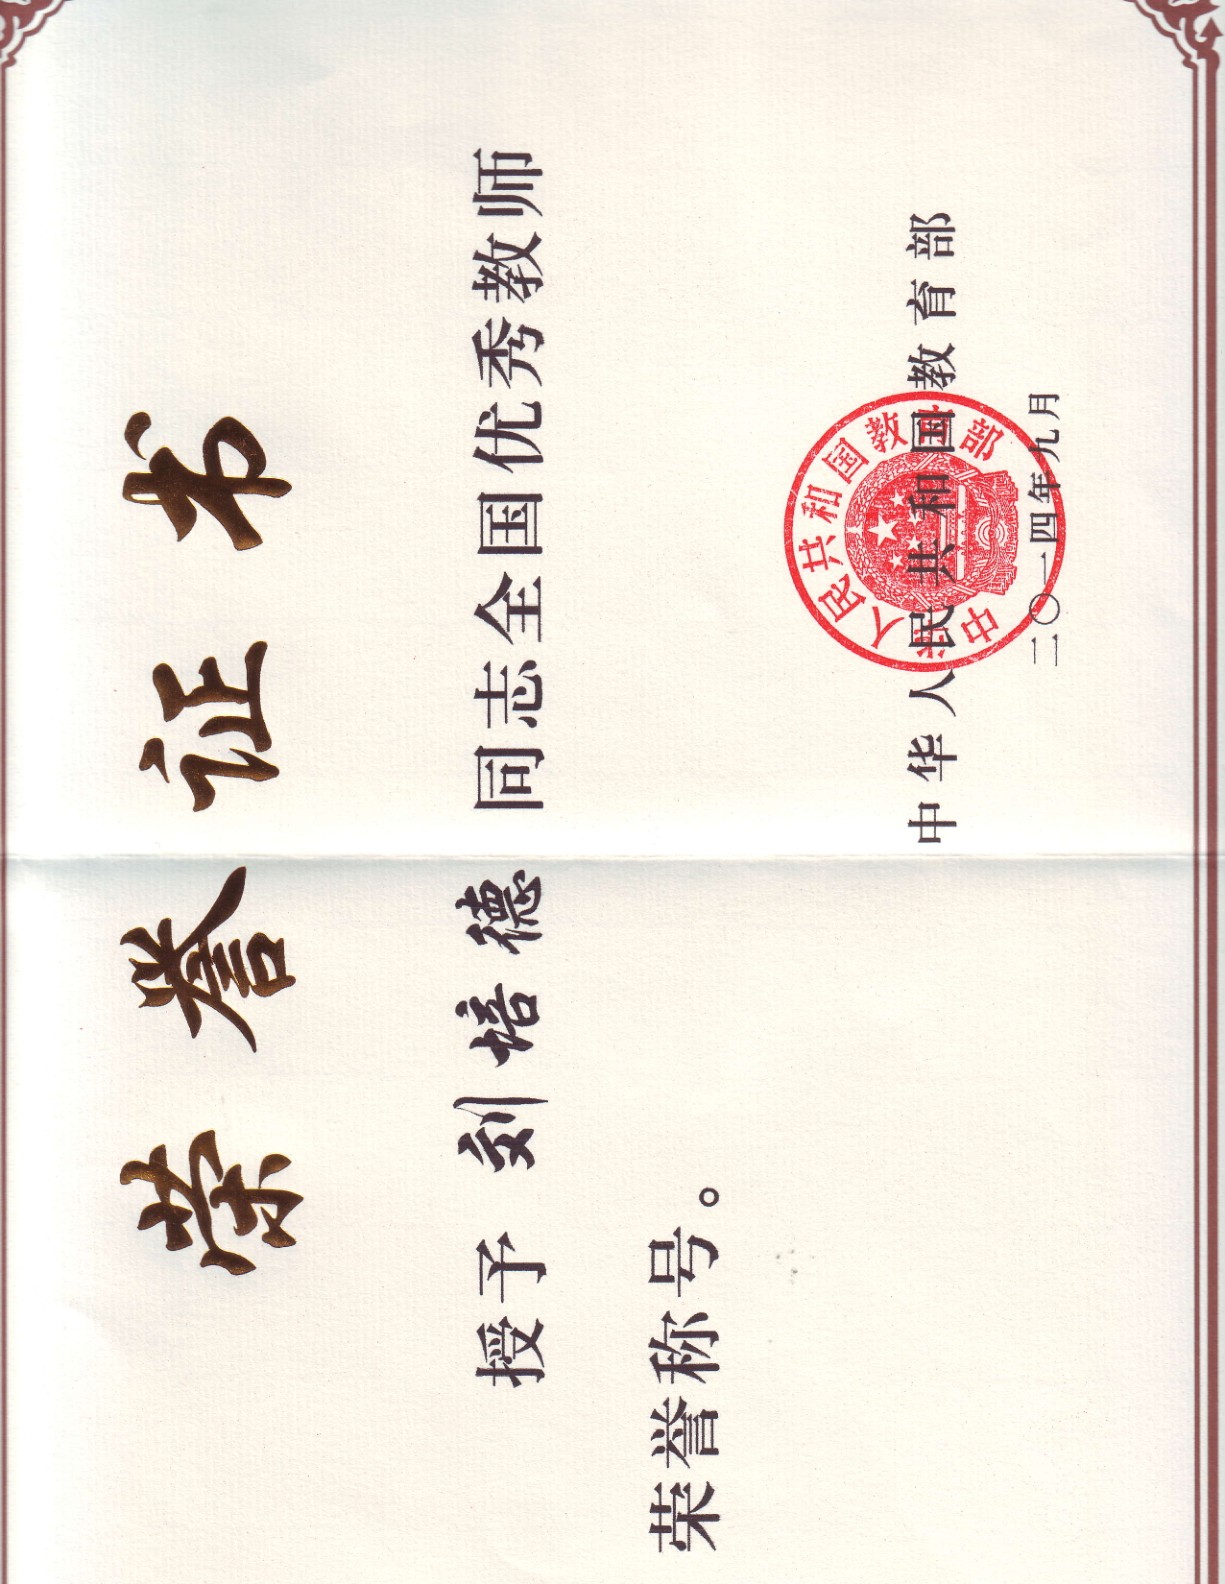 荣誉证书
授予 刘培德 同志全国优秀教师
荣誉称号。
中华人民共和国教育部
中华人民共和国教育部
二〇一四年九月